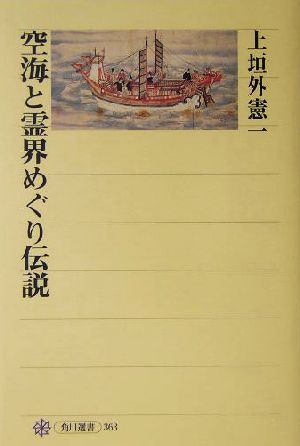 上垣外憲一
空海と霊界めぐり伝説
角川選書 363